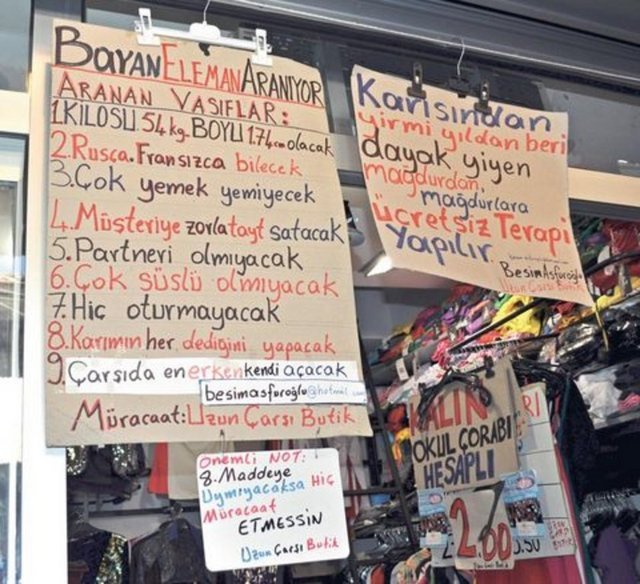 Bayan Eleman Aranıyor
Aranan Vasıflar:
1.KİLOSU.54kg.BOYU 1.74cm olacak
2.Rusça.Fransızca bilecek
3.Çok yemek yemiyecek
4.Müşteriye zorla tayt satacak
5.Partneri olmıyacak
6.Çok süslü olmıyacak
7.Hiç oturmayacak
8.Karımın her dediğini yapacak
9.Çarşıda en erken kendi açacak
besimasfuroğlu@hotmail
Müracaat:Uzun Çarşı Butik
Önemli NOT:
8.Maddeye
Uymıyacaksa Hiç
Müracaat
ETMESSİN
Uzun Çarşı Butik
Karısından
yirmi yıldan beri
dayak yiyen
mağdurdan,
mağdurlara
ücretsiz Terapi
Yapılır.
Besim Asfuroğlu
Uzun Çarşı Butik
KALIN
OKUL ÇORABI
HESAPLI
2.00
3.50